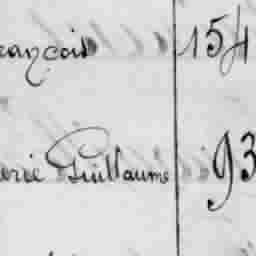 rançois 154
erie Guillaume 93